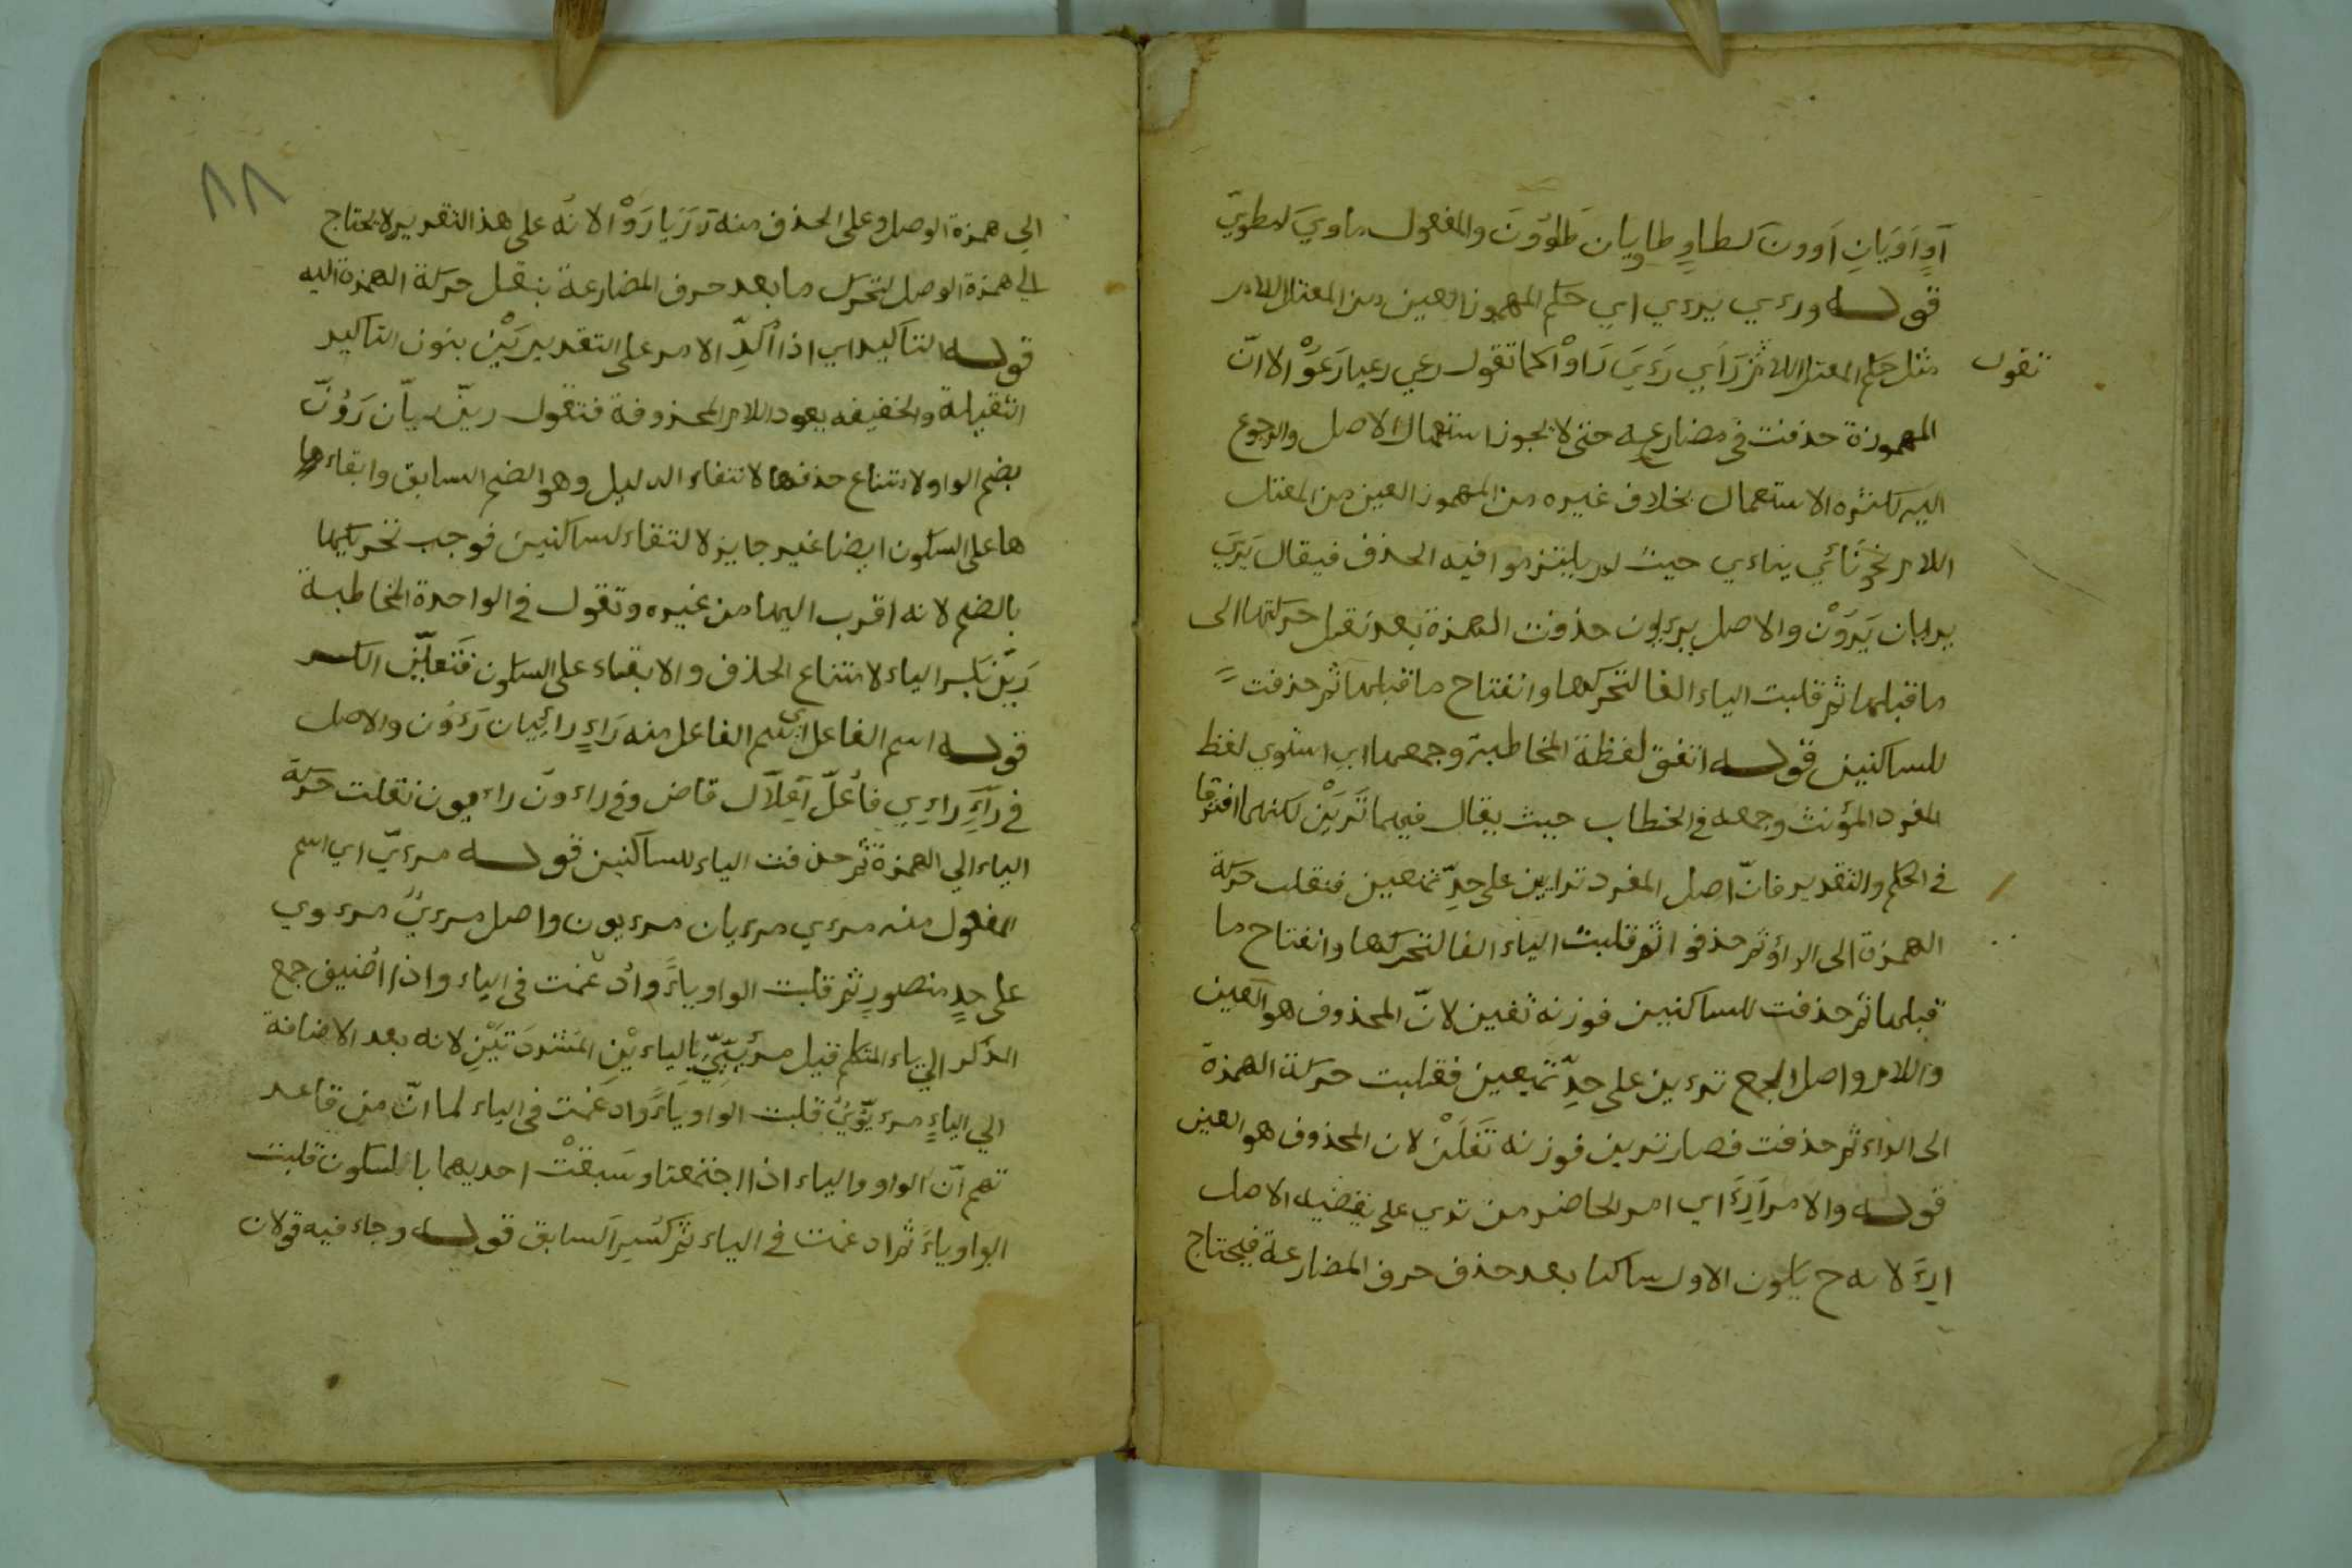 آوٍ آوَيَانِ آوونَ كطاوٍ طاويان طاوُونَ والمفعول ماويّ كمطويّ
قوله ورءي يرءي اي حكم المهموز العين من المعتل اللام
تقول
مثل حكم المعتل اللام ثم رَأي رَءَيَ رَاَوْا كما تقول رعي رعيا رَعَوْا الا انّ
المهموزة حذفت في مضارعه حتى لا يجوز استعمال الاصل والرجوع
اليه لكثره الاستعمال بخلاف غيره من المهموز العين من المعتل
اللام نحو نَائي يناءي حيث لم يلتزموا فيه الحذف فيقال يَرَي
يريان يَرَوْن والاصل يرءيون حذفت الهمزة بعد نقل حركتها الى
ما قبلها ثم قلبت الياء الفا لتحركها وانفتاح ما قبلها ثم حذفت
للساكنين قوله اتفق لفظة المخاطبة وجمعها اي استوي لفظ
المفرد المؤنث وجمعه في الخطاب حيث يقال فيهما تَرَيْن لكنهما افترقا
في الحكم والتقدير فانّ اصل المفرد ترايين على حدِّ تمنعين فنقلت حركة
الهمزة الى الراء ثم حذفوا ثم قلبت الياء الفا لتحركها وانفتاح ما
قبلها ثم حذفت للساكنين فوزنه تفين لانّ المحذوف هو العين
واللام واصل الجمع ترءين على حدِّ تمنعين فنقلبت حركة الهمزة
الى الراء ثم حذفت فصار ترين فوزنه تَفَلْنَ لان المحذوف هو العين
قوله والامر اَرِءَ اي امر الحاضر من تري على يقضيه الاصل
ارءَ لانه ح يكون الاول ساكنا بعد حذف حرف المضارعة فيحتاج
٨٨
الي همزة الوصل وعلى الحذف منه رَ رَيَا رَوْا لانّه على هذا التقدير لا يحتاج
الي همزة الوصل لتحرك ما بعد حرف المضارعة بنقل حركة الهمزة اليه
قوله التاكيد اي اذا اُكِّدِ الامر على التقديريَيْن بنون التاكيد
الثقيلة والخفيفه يعود اللام المحذوفة فتقول ريَنّ ريانّ رَوُنّ
بضم الواو لامتناع حذفها لانتفاء الدليل وهو الضم السابق وابقاءها
ها على السكون ايضا غير جايز لالتقاء الساكنين فوجب تحريكها
بالضم لانه اقرب اليها من غيره وتقول في الواحدة المخاطبة
رَيِنّ بكسر الياء لامتناع الحذف والابقاء على السكون فتعيّن الكسر
قوله اسم الفاعل اي اسم الفاعل منه رَاءٍ رائيان رَءوُن والاصل
في رَآءٍ رَاءِي فاُعلّ اِعْلَال قاض وفي راءون راءيون نقلت حركة
الياء الي الهمزة ثم حذفت الياء للساكنين قوله مرءيّ اي اسم
المفعول منه مرءي مرءيان مرءيون واصل مرءيّ مرءوي
على حدِ منصورٍ ثم قلبت الواو ياءً وادغمت في الياء واذا اُضيف جمع
الذكر الي ياء المتكلم قيل مرئييّ بالياءيْن المشددَتَيْنِ لانه بعد الاضافة
الي الياءٍ مرءيّويُ قلبت الواو ياءً وادغمت في الياء لما انّ من قاعد
تهم انّ الواو والياء اذا اجتمعتا وسَبقتْ احديهما بالسكون قلبت
الواو ياءً ثم ادغمت في الياء ثم كسِر السابق قوله وجاء فيه قولان